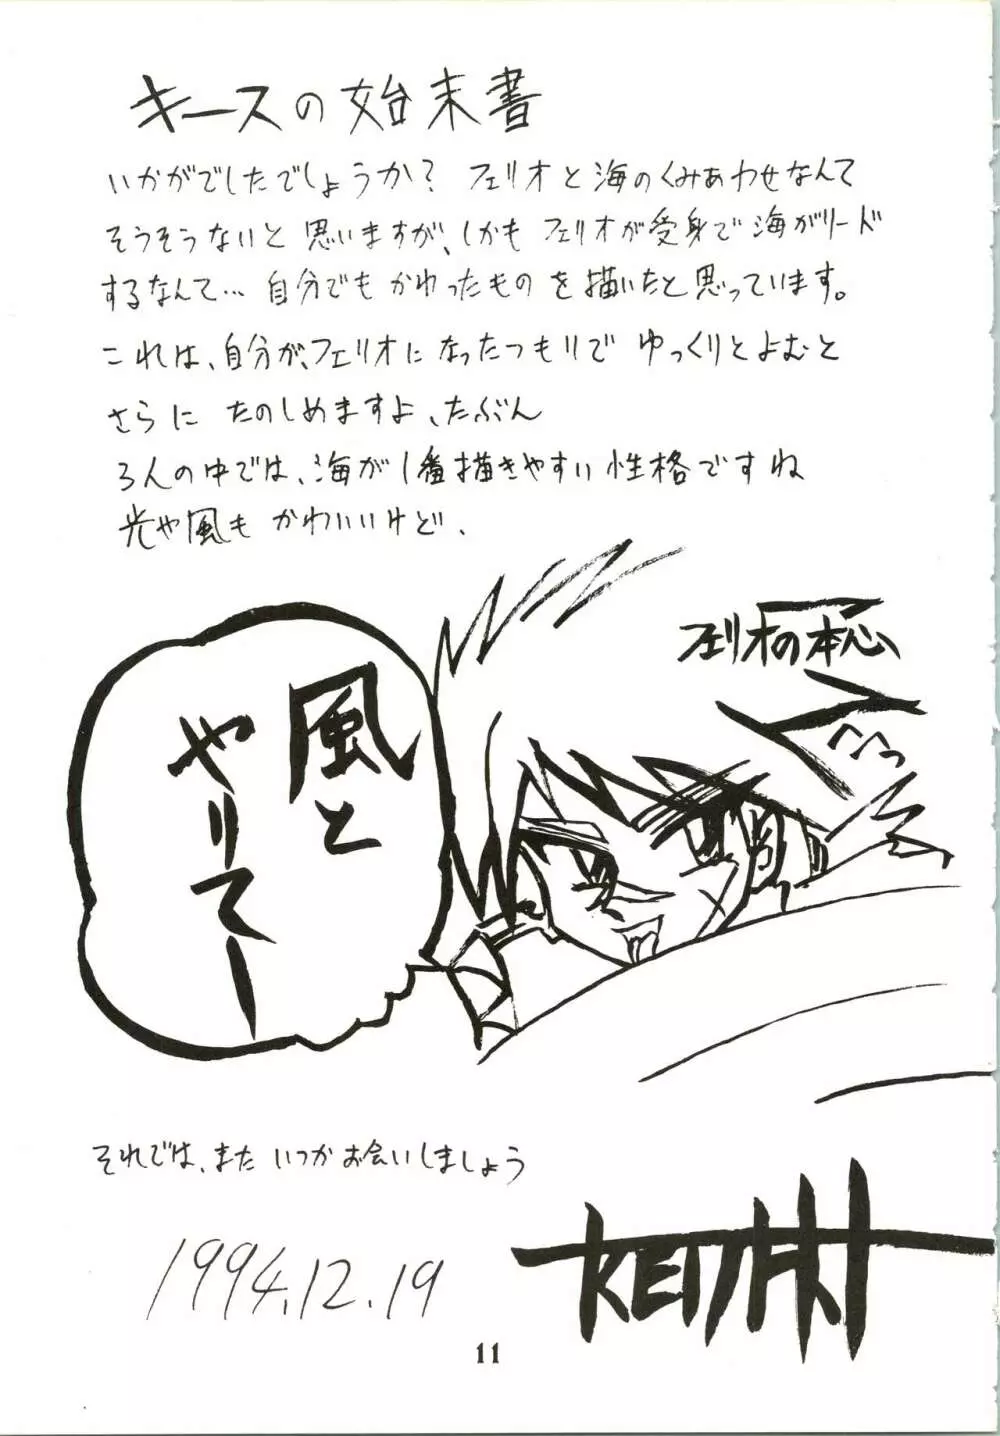 キースの始末書
いかがでしたでしょうか? フェリオと海のくみあわせなんて
そうそうないと思いますが、しかもフェリオが受身で海がリード
するなんて… 自分でもかわったものを描いたと思っています。
これは、自分が、フェリオになったつもりでゆっくりとよむと
さらにたのしめますよ、たぶん
3人の中では、海が1番描きやすい性格ですね
光や風もかわいいけど、
フェリオの本心
風と
やりてー
それでは、またいつかお会いしましょう
1994.12.19
11